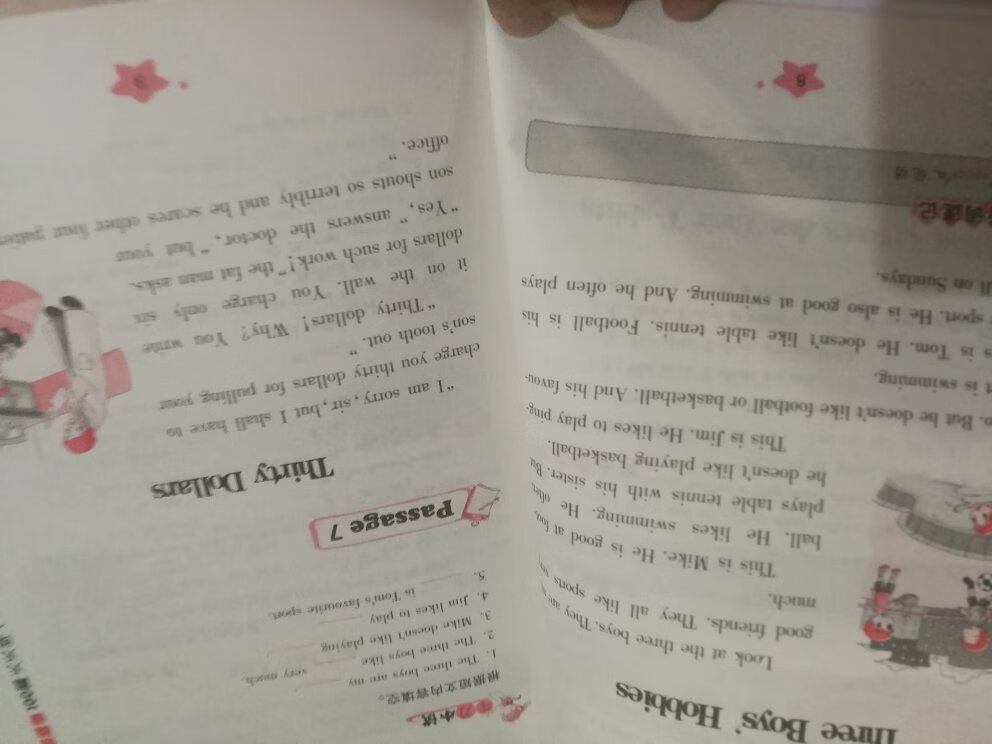 Three Boys' Hobbies
Look at the three boys. They are
good friends. They all like sports
much.
This is Mike. He is good at
ball. He likes swimming. He often
plays table tennis with his sister. But
he doesn't like playing basketball.
This is Jim. He likes to play ping-
But he doesn't like football or basketball. And his favou-
is swimming.
is Tom. He doesn't like table tennis. Football is his
sport. He is also good at swimming. And he often plays
on Sundays.
8
根据短文内容填空。
1. The three boys are my
2. The three boys like very much.
3. Mike doesn't like playing
4. Jim likes to play
5. is Tom's favourite sport.
Passage 7
Thirty Dollars
“I am sorry, sir, but I shall have to
charge you thirty dollars for pulling your
son's tooth out. ”
“Thirty dollars! Why? You write
it on the wall. You charge only six
dollars for such work! ” the fat man asks.
“Yes, ” answers the doctor, “ but your
son shouts so terribly and he scares other four
office. ”
9